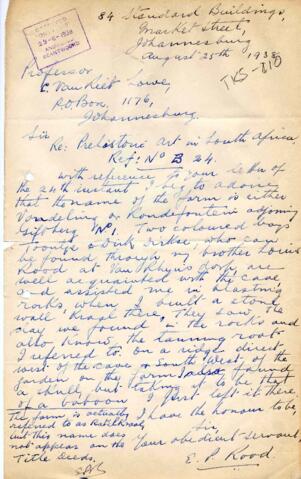 84 Standard Buildings,
Market Street,
Johannesburg
August 25th 1938
TKS-810
Professor,
C. Van Riet Lowe,
P.O. Box, 1176,
Johannesburg.
Sir
Re: Prehistoric Art in South Africa
Ref: No B 24.
With reference to your letter of
the 24th instant I beg to advise
that the name of the farm is either
Vondeling or Rondefontein adjoining
Gifberg No 1. Two coloured boys
Toontje & Dirk Dirkse, who can
be found through my brother Louis
Rood at Van Rhynsdorp, are
well acquainted with the cave
and assisted me in blasting
rocks, when I built a stone
wall kraal there. They saw the
clay we found in the rocks and
also know the tanning root
I referred to. On a ridge direct
west of the cave & South West of the
garden on the farm I also found
a skull, but taking it to be that
of a baboon I just left it there.
The farm is actually
I have the honour to be,
referred to as
Sir,
but this name does
Your obedient servant,
not appear on the
Title Deeds.
E. P. Rood.